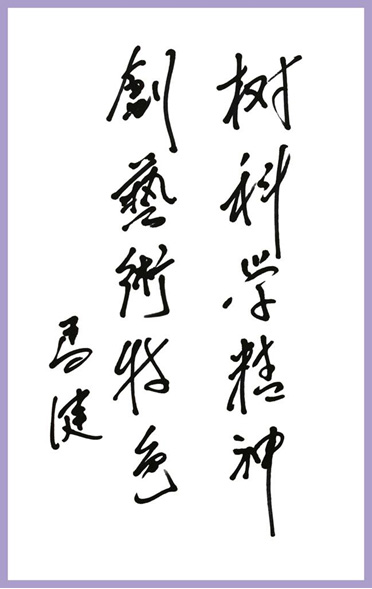 树科学精神
創藝術特色
马健